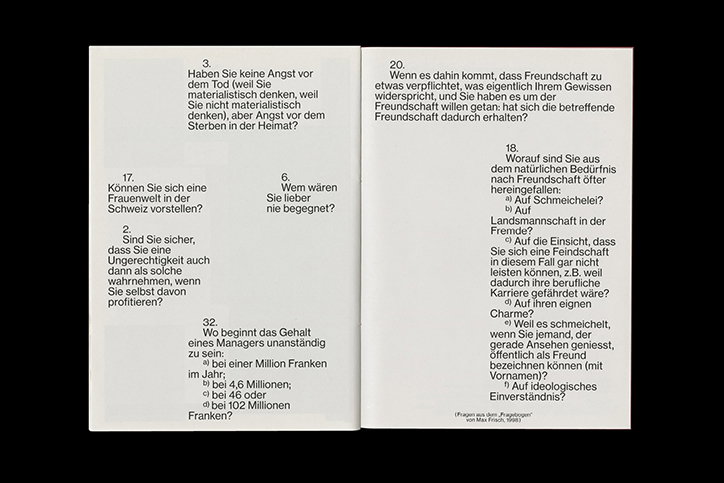 3.
Haben Sie keine Angst vor
dem Tod (weil Sie
materialistisch denken, weil
Sie nicht materialistisch
denken), aber Angst vor dem
Sterben in der Heimat?
17.
Können Sie sich eine
Frauenwelt in der
Schweiz vorstellen?
6.
Wem wären
Sie lieber
nie begegnet?
2.
Sind Sie sicher,
dass Sie eine
Ungerechtigkeit auch
dann als solche
wahrnehmen, wenn
Sie selbst davon
profitieren?
32.
Wo beginnt das Gehalt
eines Managers unanständig
zu sein:
a) bei einer Million Franken
im Jahr;
b) bei 4,6 Millionen;
c) bei 46 oder
d) bei 102 Millionen
Franken?
20.
Wenn es dahin kommt, dass Freundschaft zu
etwas verpflichtet, was eigentlich Ihrem Gewissen
widerspricht, und Sie haben es um der
Freundschaft willen getan: hat sich die betreffende
Freundschaft dadurch erhalten?
18.
Worauf sind Sie aus
dem natürlichen Bedürfnis
nach Freundschaft öfter
hereingefallen:
a) Auf Schmeichelei?
b) Auf
Landsmannschaft in der
Fremde?
c) Auf die Einsicht, dass
Sie sich eine Feindschaft
in diesem Fall gar nicht
leisten können, z.B. weil
dadurch ihre berufliche
Karriere gefährdet wäre?
d) Auf ihren eignen
Charme?
e) Weil es schmeichelt,
wenn Sie jemand, der
gerade Ansehen geniesst,
öffentlich als Freund
bezeichnen können (mit
Vornamen)?
f) Auf ideologisches
Einverständnis?
(Fragen aus dem „Fragebogen“
von Max Frisch, 1998)